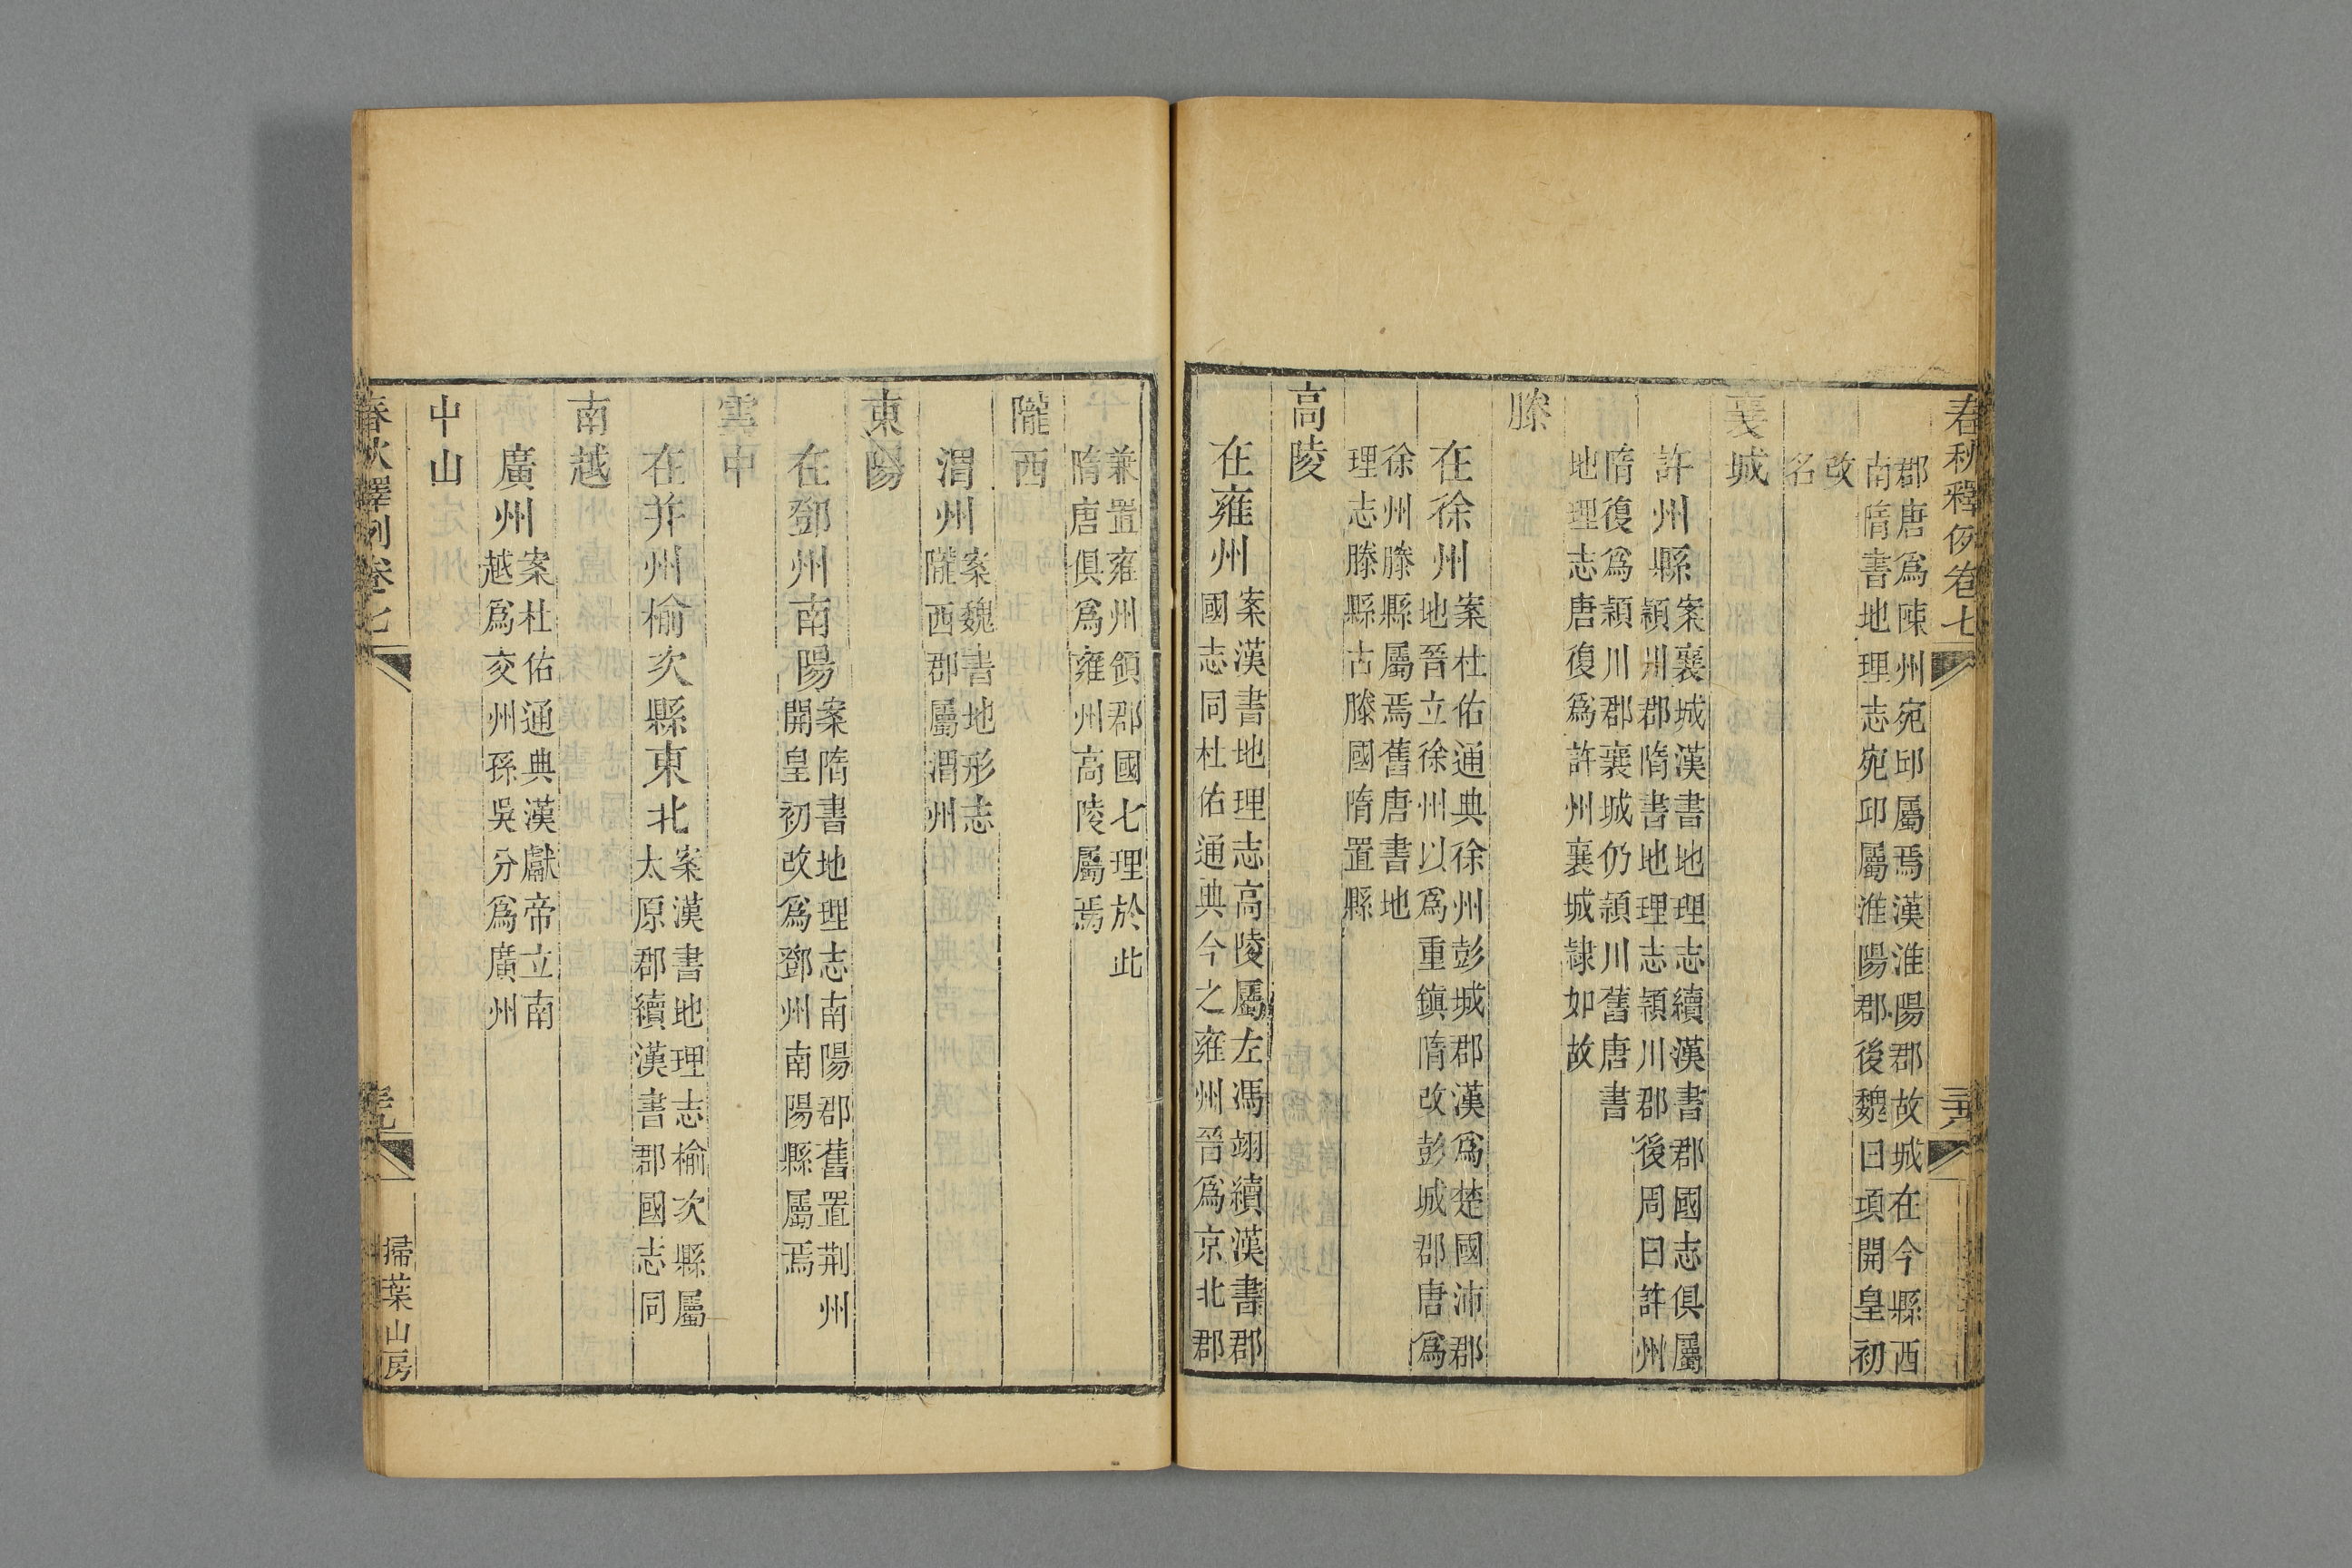 春秋釋例卷七
郡唐爲陳州宛邱屬焉漢淮陽郡故城在今縣西
南隋書地理志宛邱屬淮陽郡後魏曰項開皇初
改
名
襄城
許州縣案襄城漢書地理志續漢書郡國志俱屬
潁川郡隋書地理志潁川郡後周曰許州
隋復爲潁川郡襄城仍潁川舊唐書
地理志唐復爲許州襄城隷如故
滕
在徐州案杜佑通典徐州彭城郡漢爲楚國沛郡
地晉立徐州以爲重鎭隋改彭城郡唐爲
徐州滕縣屬焉舊唐書地
理志滕縣古滕國隋置縣
高陵
在雍州案漢書地理志高陵屬左馮翊續漢書郡
國志同杜佑通典今之雍州晉爲京北郡
兼置雍州領郡國七理於此
隋唐俱爲雍州高陵屬焉
隴西
渭州案魏書地形志
隴西郡屬渭州
東陽
在鄧州南陽案隋書地理志南陽郡舊置荆州
開皇初改爲鄧州南陽縣屬焉
雲中
在并州榆次縣東北案漢書地理志榆次縣屬
太原郡續漢書郡國志同
南越
廣州案杜佑通典漢獻帝立南
越爲交州孫吳分爲廣州
中山
春秋釋例卷七
掃葉山房